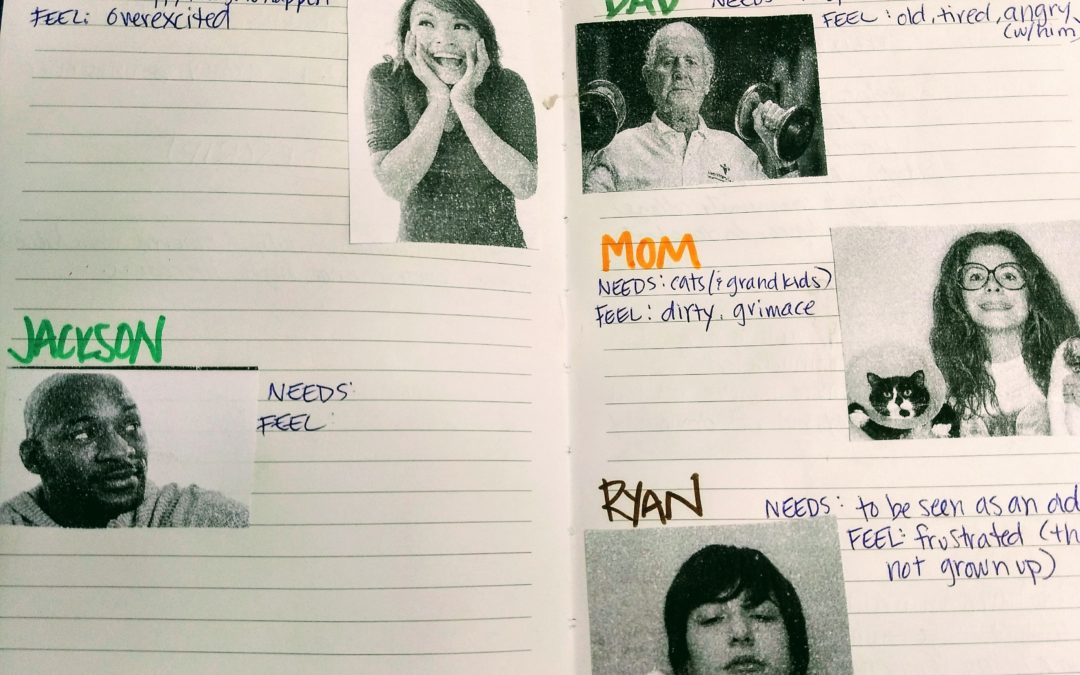 FEEL: overexcited
JACKSON
NEEDS:
FEEL:
DAD NEEDS
FEEL: old, tired, angry
(w/him)
MOM
NEEDS: cats (& grandkids)
FEEL: dirty, grimace
RYAN
NEEDS: to be seen as an ad
FEEL: frustrated (th
not grown up)